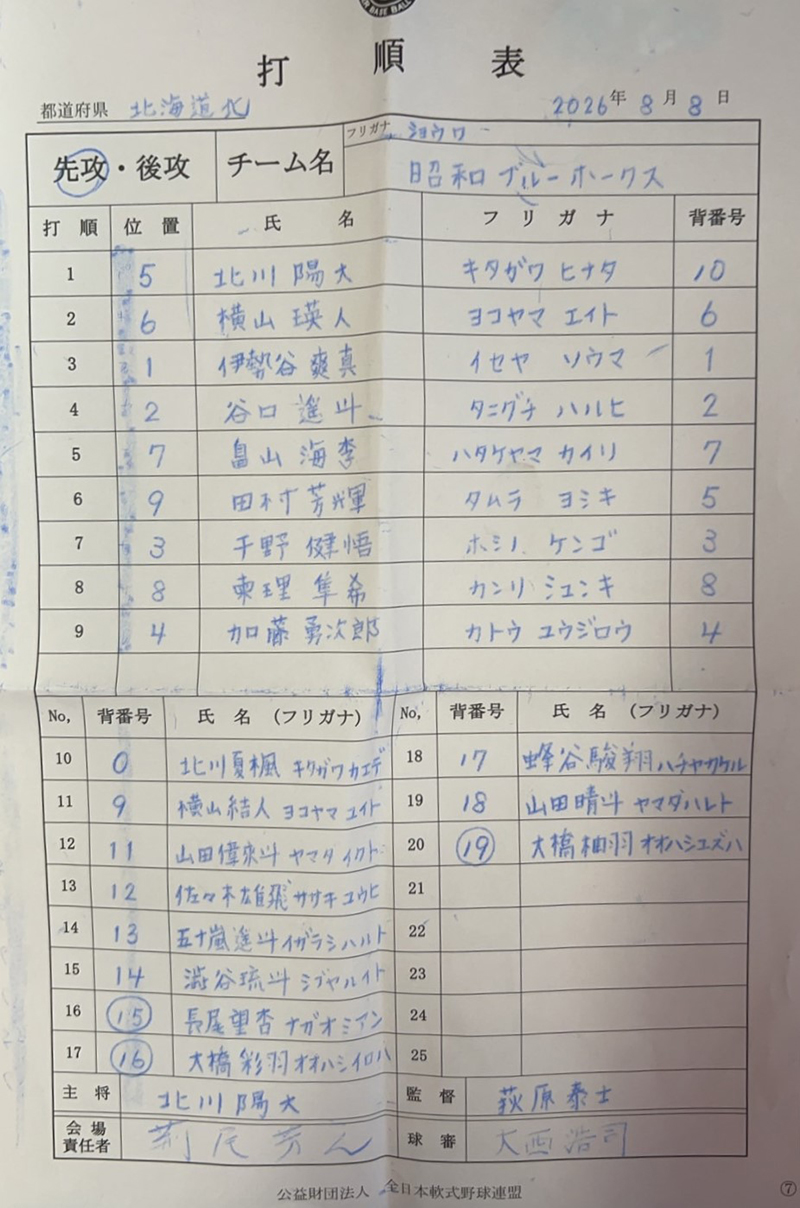 打順表
都道府県 北海道北 2026年 8月 8日
先攻・後攻 チーム名 フリガナ ショウワ
昭和ブルーホークス
打順 位置 氏名 フリガナ 背番号
1 5 北川 陽大 キタガワ ヒナタ 10
2 6 横山 瑛人 ヨコヤマ エイト 6
3 1 伊勢谷 爽真 イセヤ ソウマ 1
4 2 谷口 遙斗 タニグチ ハルヒ 2
5 7 畠山 海李 ハタケヤマ カイリ 7
6 9 田村 芳輝 タムラ ヨシキ 5
7 3 干野 健悟 ホシノ ケンゴ 3
8 8 東理 隼希 カンリ シュンキ 8
9 4 加藤 勇次郎 カトウ ユウジロウ 4
No, 背番号 氏名 (フリガナ) No, 背番号 氏名 (フリガナ)
10 0 北川夏楓 キタガワカエデ 18 17 蜂谷駿翔 ハチヤカケル
11 9 横山結人 ヨコヤマユイト 19 18 山田晴斗 ヤマダハルト
12 11 山田偉來斗 ヤマダイクト 20 19 大橋柚羽 オオハシユズハ
13 12 佐々木雄飛 ササキユウヒ 21
14 13 五十嵐遙斗 イガラシハルト 22
15 14 澁谷琉斗 シブヤルイト 23
16 15 長尾望杏 ナガオミアン 24
17 16 大橋彩羽 オオハシイロハ 25
主将 北川 陽大 監督 荻原泰士
会場責任者 球審 大西浩司
公益財団法人 全日本軟式野球連盟 ⑦